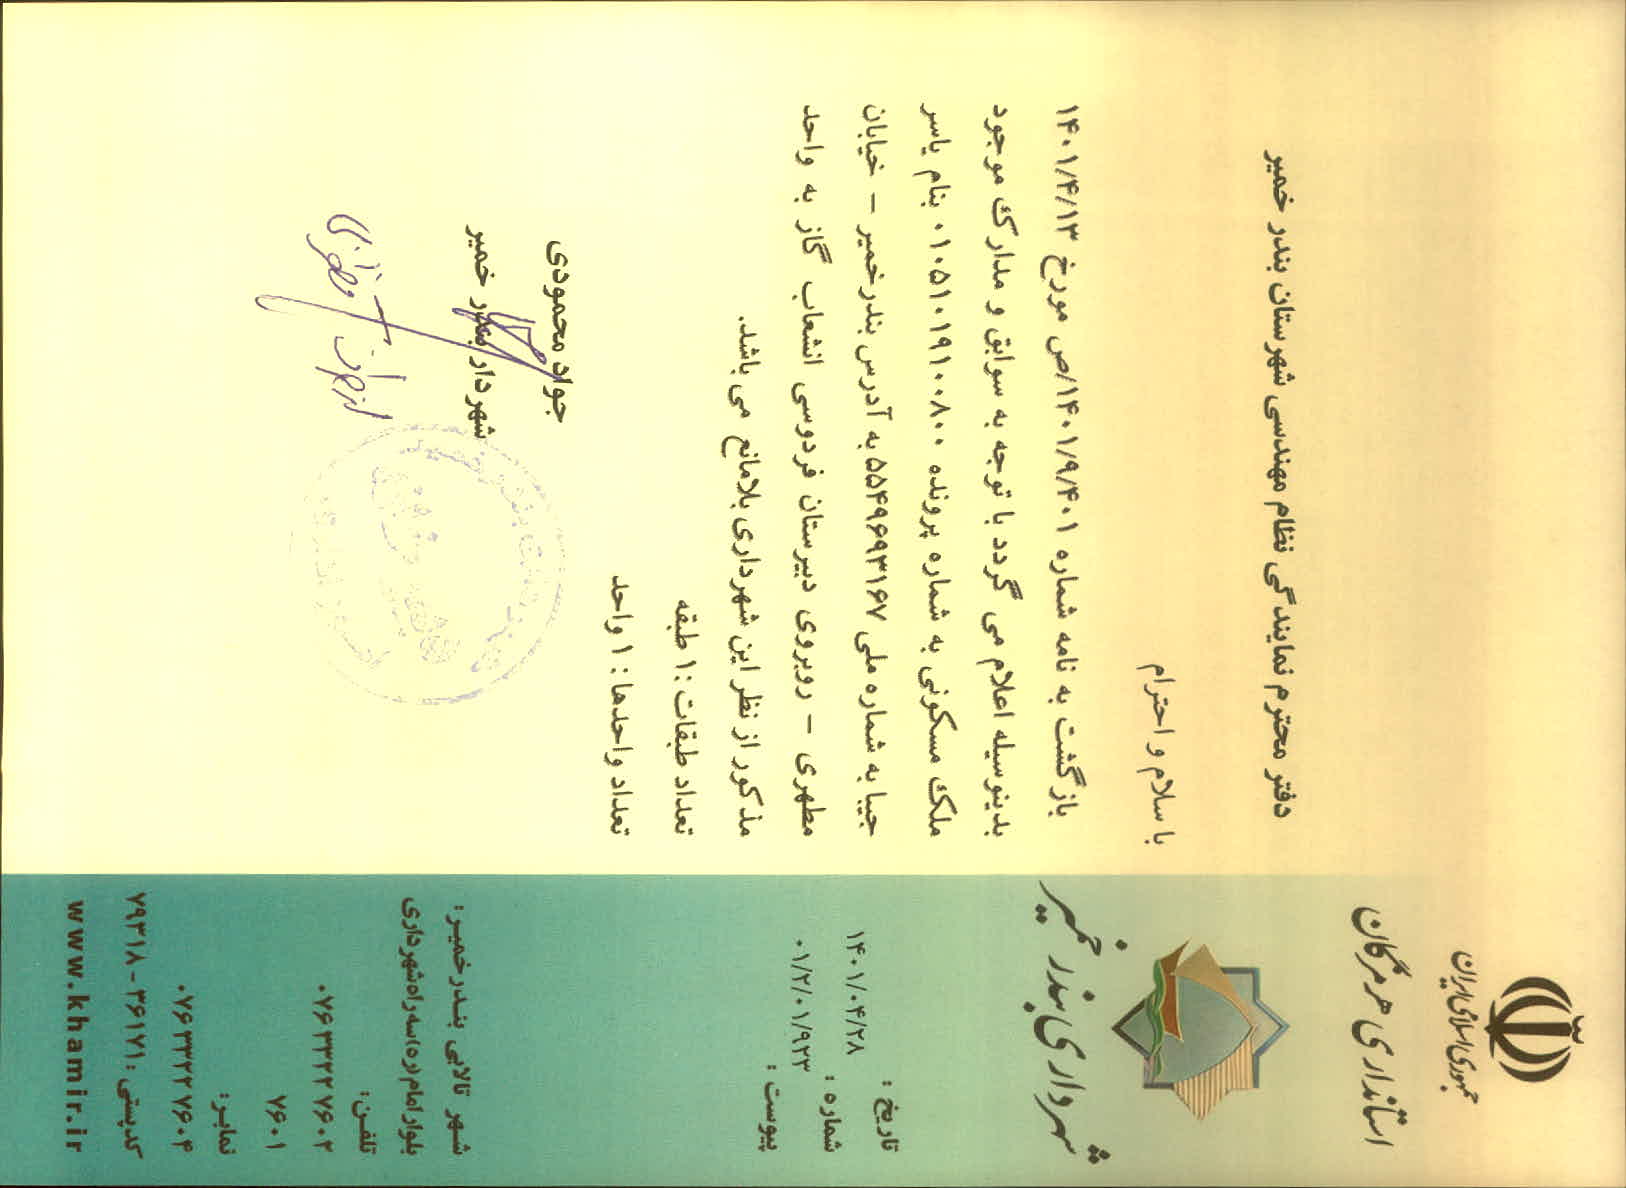 جمهوری اسلامی ایران
استانداری هرمزگان
شهرداری بندر خمیر
تاریخ :
۱۴۰۱/۰۴/۲۸
شماره :
۰۱/۲/۰۱/۹۲۳
پیوست :
دفتر محترم نمایندگی نظام مهندسی شهرستان بندر خمیر
با سلام و احترام
بازگشت به نامه شماره ۱۴۰۱/۹/۴۰۱/ص مورخ ۱۴۰۱/۴/۱۳
بدینوسیله اعلام می گردد با توجه به سوابق و مدارک موجود
ملک مسکونی به شماره پرونده ۰۱۰۵۱۰۱۹۱۰۰۸۰۰ بنام یاسر
جیبا به شماره ملی ۵۵۴۹۶۹۳۱۶۷ به آدرس بندرخمیر – خیابان
مطهری – روبروی دبیرستان فردوسی انشعاب گاز به واحد
مذکور از نظر این شهرداری بلامانع می باشد.
تعداد طبقات :۱ طبقه
تعداد واحدها : ۱ واحد
جواد محمودی
شهردار بندر خمیر
شهر تالابی بندرخمیر :
بلوار امام ره/سه راه شهرداری
تلفن:
۰۷۶۳۳۳۲۷۶۰۲
۷۶۰۱
نمابر:
۰۷۶۳۳۳۲۷۶۰۴
کدپستی : ۳۶۱۷۱ - ۷۹۳۱۸
www.khamir.ir